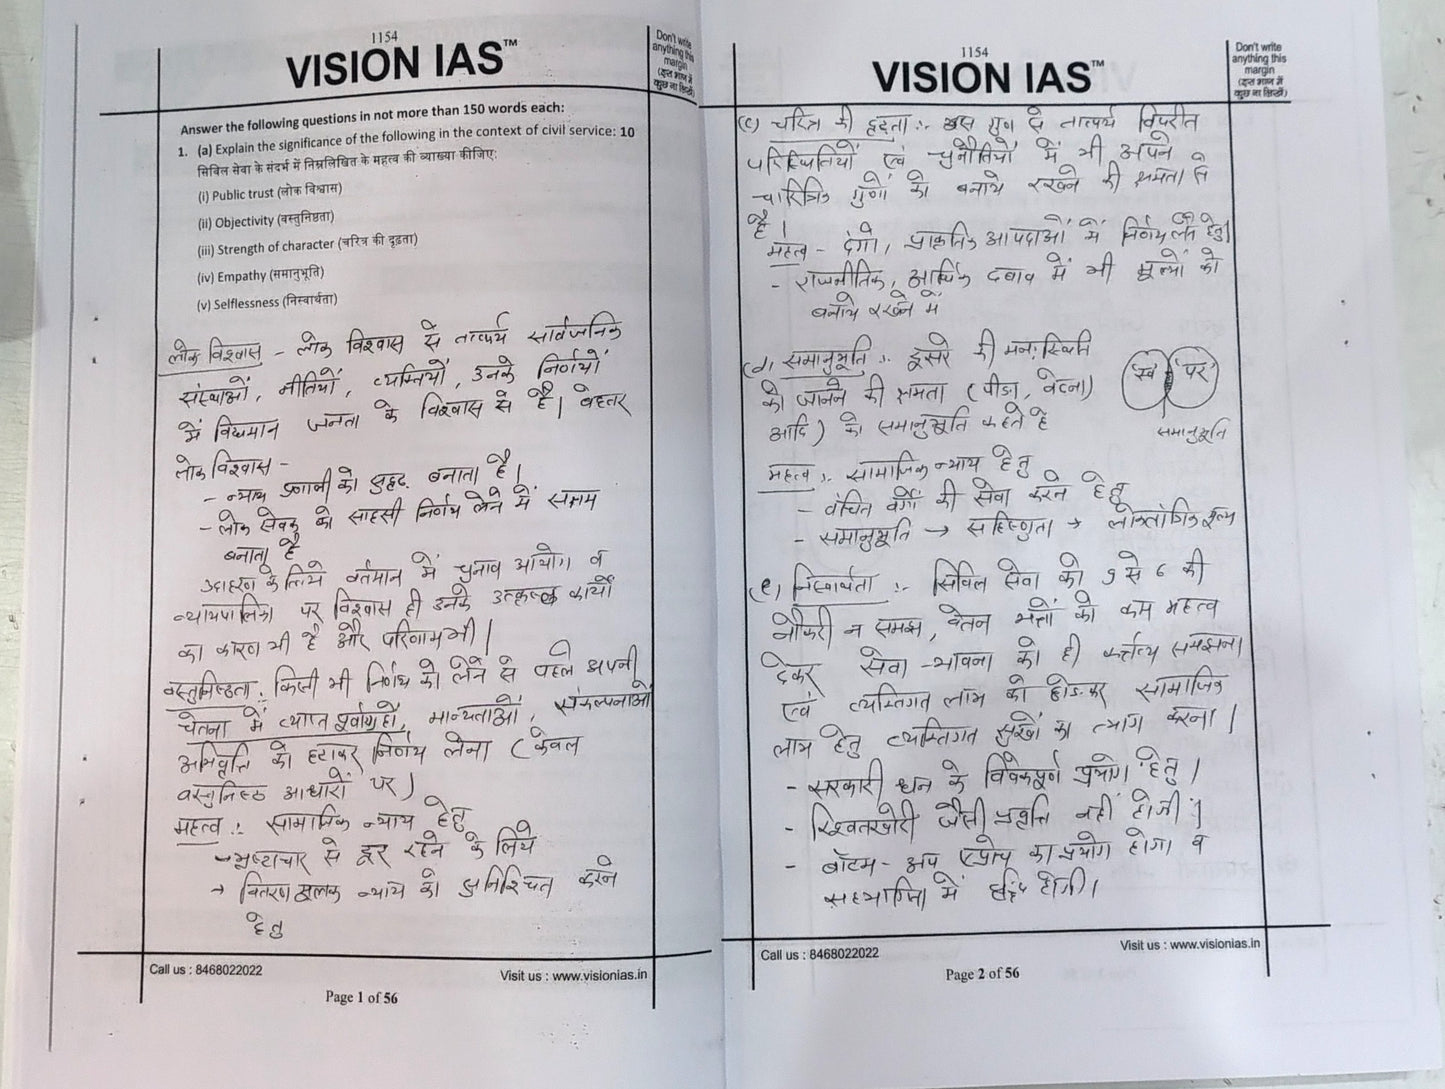 1154
VISION IAS™
Don't write
anything this
margin
(इस भाग में
कुछ ना लिखें)
Answer the following questions in not more than 150 words each:
1. (a) Explain the significance of the following in the context of civil service: 10
सिविल सेवा के संदर्भ में निम्नलिखित के महत्व की व्याख्या कीजिए:
(i) Public trust (लोक विश्वास)
(ii) Objectivity (वस्तुनिष्ठता)
(iii) Strength of character (चरित्र की दृढ़ता)
(iv) Empathy (समानुभूति)
(v) Selflessness (निस्वार्थता)
लोक विश्वास - लोक विश्वास से तात्पर्य सार्वजनिक
संस्थाओं, नीतियों, व्यक्तियों, उनके निर्णयों
में विद्यमान जनता के विश्वास से है। बेहतर
लोक विश्वास -
- न्याय प्रणाली को सुदृढ़ बनाता है।
- लोक सेवक को साहसी निर्णय लेने में सक्षम
बनाता है
उदाहरण के लिये वर्तमान में चुनाव आयोग व
न्यायपालिका पर विश्वास ही उनके उत्कृष्ट कार्यों
का कारण भी है और परिणाम भी।
वस्तुनिष्ठता: किसी भी निर्णय को लेने से पहले अपनी
चेतना में व्याप्त पूर्वाग्रहों, मान्यताओं, संकल्पनाओं
अभिवृत्ति को हटाकर निर्णय लेना (केवल
वस्तुनिष्ठ आधारों पर)
महत्व :. सामाजिक न्याय हेतु
→ भ्रष्टाचार से दूर रहने के लिये
→ वितरणमूलक न्याय को सुनिश्चित करने
हेतु
Call us : 8468022022
Visit us : www.visionias.in
Page 1 of 56
1154
VISION IAS™
Don't write
anything this
margin
(इस भाग में
कुछ ना लिखें)
(c) चरित्र की दृढ़ता :. इस गुण से तात्पर्य विपरीत
परिस्थितियों एवं चुनौतियों में भी अपने
चारित्रिक गुणों को बनाये रखने की क्षमता से
है।
महत्व - दंगो, प्राकृतिक आपदाओं में निर्णय लेने हेतु।
- राजनीतिक, आर्थिक दबाव में भी मूल्यों को
बनाये रखने में
(d) समानुभूति :. दूसरे की मनःस्थिति
को जानने की क्षमता (पीड़ा, वेदना)
आदि) को समानुभूति कहते है
'स्व' 'पर'
समानुभूति
महत्व :. सामाजिक न्याय हेतु
- वंचित वर्गों की सेवा करने हेतु
- समानुभूति → सहिष्णुता → लोकतांत्रिक मूल्य
(e) निस्वार्थता :- सिविल सेवा को 9 से 6 की
नौकरी न समझ, वेतन भत्तों को कम महत्व
देकर सेवा-भावना को ही कर्त्तव्य समझना
एवं व्यक्तिगत लाभ को छोड़कर सामाजिक
लाभ हेतु व्यक्तिगत सुखों का त्याग करना।
- सरकारी धन के विवेकपूर्ण प्रयोग हेतु।
- रिश्वतखोरी जैसी प्रवृत्ति नहीं होगी।
- बॉटम-अप एप्रोच का प्रयोग होगा व
सहभागिता में वृद्धि होगी।
Call us : 8468022022
Visit us : www.visionias.in
Page 2 of 56